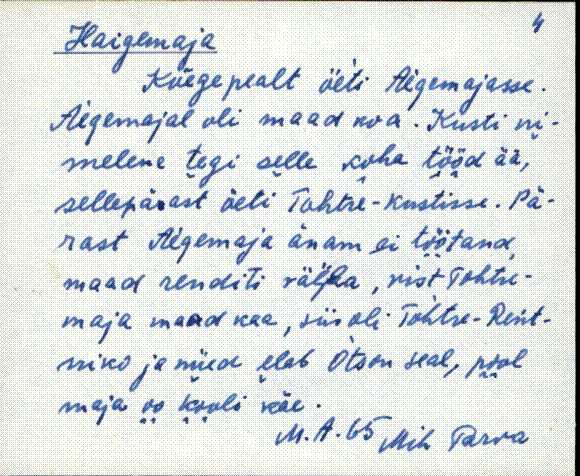 4
Haigemaja
Kõegepealt öeti Aigemajasse.
Aigemajal oli maad koa. Kusti ni-
melene tegi selle koha tööd ää,
sellepärast öeti Tohtre-Kustisse. Pä-
rast Aigemaja änam ei töötand,
maad renditi välla, vist Tohtre-
maja maad kaa, siis oli Tohtre-Rent-
niko ja nüed elab Otson seal, pool
maja oo kooli käe.
M.A. 65 Mih Parva